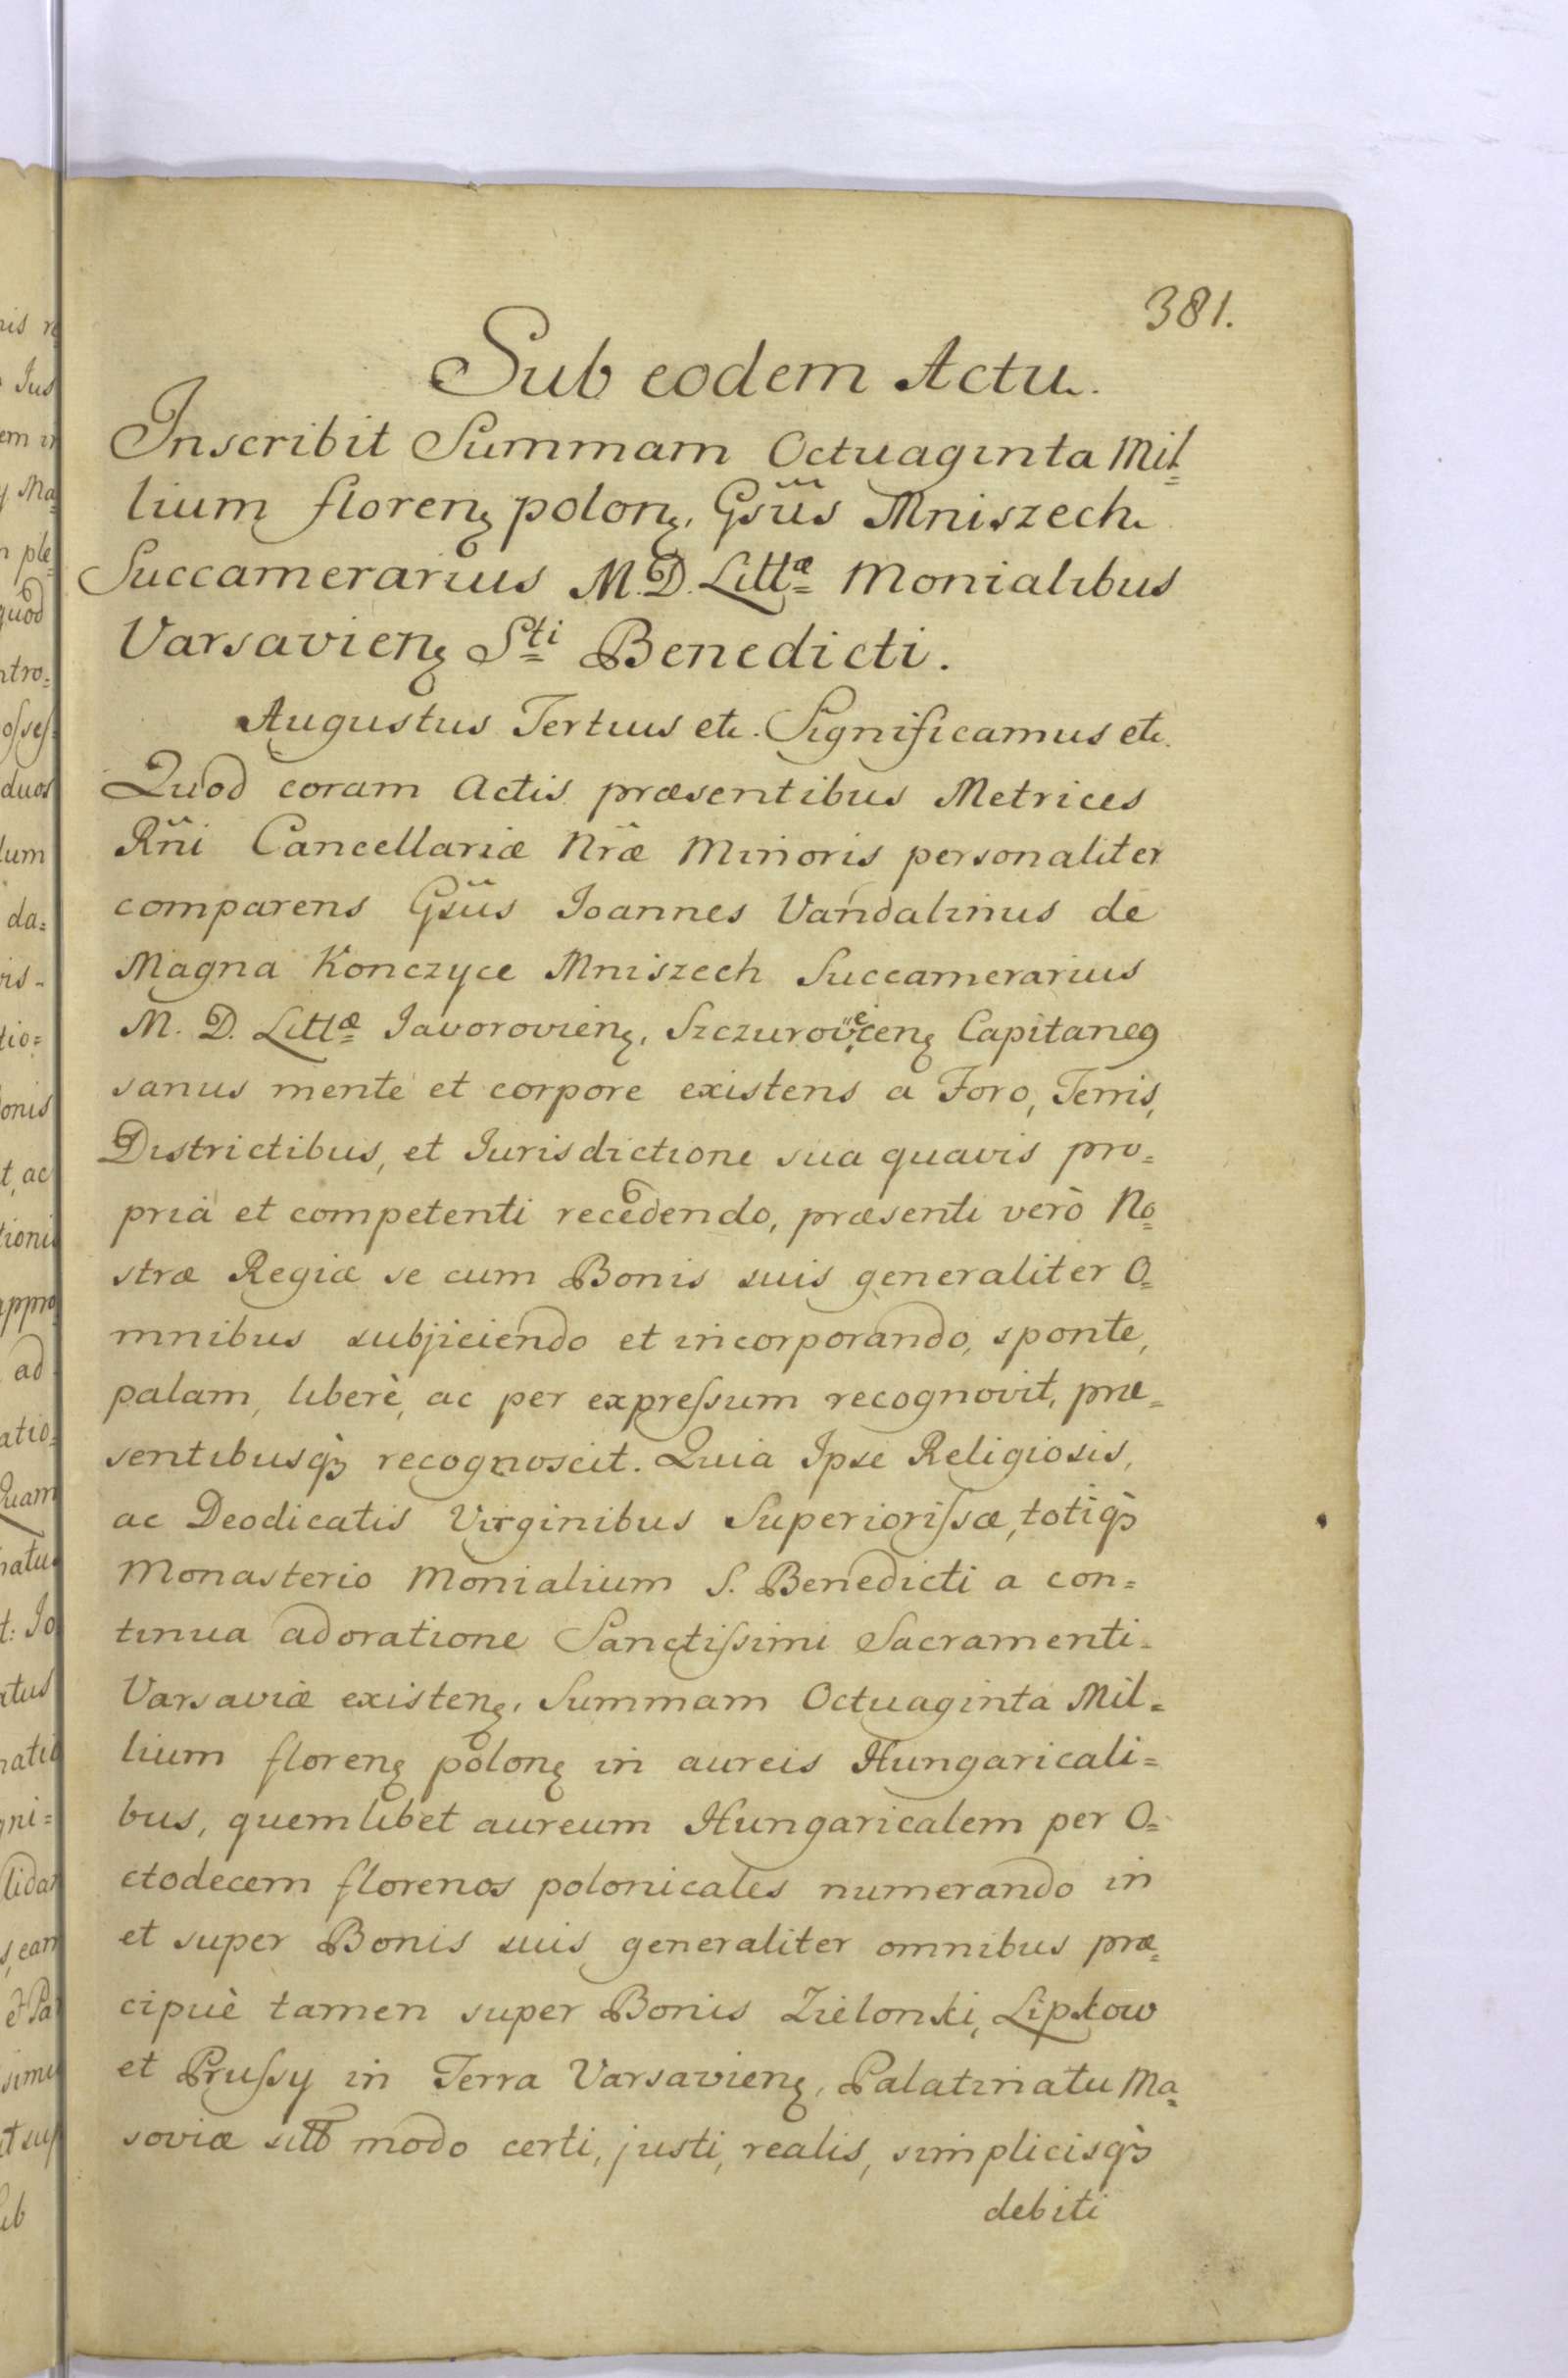 381.
Sub eodem Actu.
Inscribit Summam Octuaginta Mil=
lium florenꝫ polonꝫ. Gsüs Mniszech
Succamerarius M.D. Littæ Monialibus
Varsavienꝫ Sti Benedicti.
Augustus Tertius etc. Significamus etc.
Quod coram Actis præsentibus Metrices
Rñi Cancellariæ Nræ Minoris personaliter
comparens Gsüs Joannes Vandalinus de
Magna Konczyce Mniszech Succamerarius
M. D. Littæ Javorovienꝫ. Szczurovecenꝫ Capitaneꝰ
sanus mente et corpore existens a Foro, Terris,
Districtibus, et Jurisdictione sua quavis pro=
pria et competenti recedendo, præsenti verò No=
stræ Regiæ se cum Bonis suis generaliter O=
mnibus subjiciendo et incorporando, sponte,
palam, liberè, ac per expreſsum recognovit, præ=
sentibusqꝫ recognoscit. Quia Ipse Religiosis,
ac Deodicatis Virginibus Superioriſsæ, totiqꝫ
Monasterio Monialium S. Benedicti a con=
tinua adoratione Sanctiſsimi Sacramenti=
Varsaviæ existenꝫ, Summam Octuaginta Mil=
lium florenꝫ polonꝫ in aureis Hungaricali=
bus, quemlibet aureum Hungaricalem per O=
ctodecem florenos polonicales numerando in
et super Bonis suis generaliter omnibus præ=
cipuè tamen super Bonis Zielonki, Lipkow
et Pruſsy in Terra Varsavienꝫ, Palatinatu Ma=
soviæ sitt modo certi, justi, realis, simplicisqꝫ
debiti